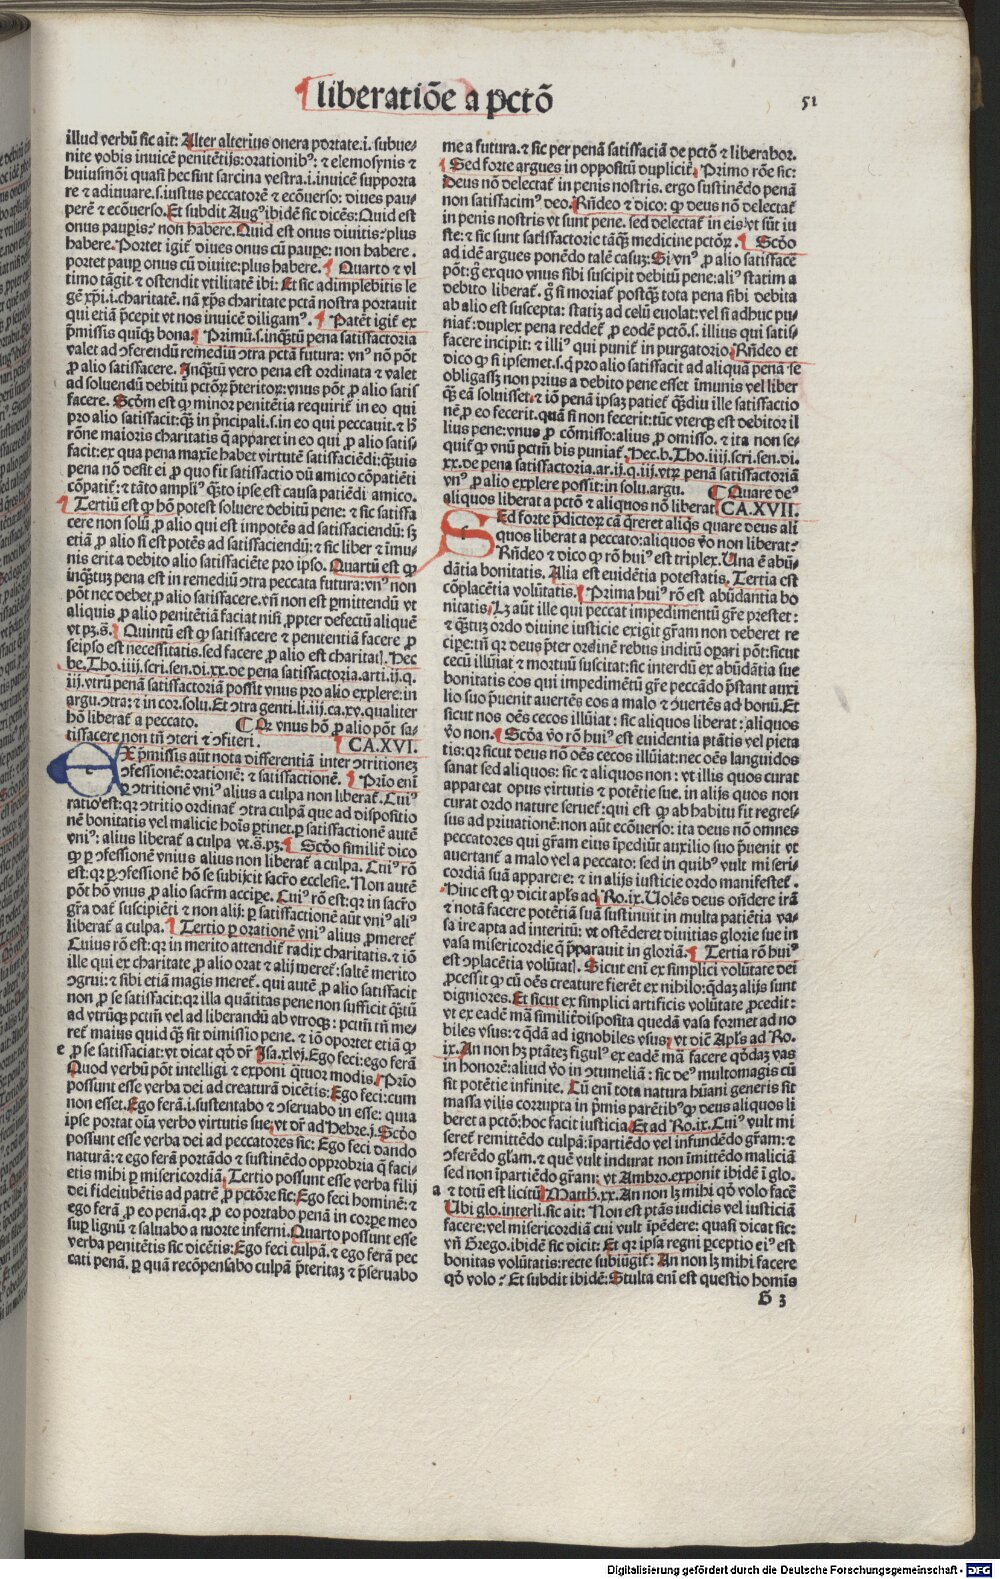 liberatiōe a pctō
51
illud verbū sic ait: Alter alterius onera portate.i. subue-
nite vobis inuicē penitētijs: orationibꝰ: ⁊ elemosynis ⁊
huiusmōi quasi hec sint sarcina vestra.i. inuicē supporta
re ⁊ adiuuare.s. iustus peccatorē ⁊ ecōuerso: diues pau-
perē ⁊ ecōuerso. Et subdit Augꝰ ibidē sic dicēs: Quid est
onus paupis? non habere. Quid est onus diuitis? plus
habere. Portet igit diues onus cū paupe: non habere.
portet paup onus cū diuite: plus habere. Quarto ⁊ vl
timo tāgit ⁊ ostendit vtilitatē ibi: Et sic adimplebitis le
gē xp̄i.i. charitatē. nā xp̄s charitate pctā nostra portauit
qui etiā p̄cepit vt nos inuicē diligamꝰ. Patet igit ex
p̄missis quinq bona. Primū.s. inq̄ztū pena satisfactoria
valet ad ↄferendū remediū ↄtra pctā futura: vnꝰ nō pōt
ꝓ alio satisfacere. Inq̄ztū vero pena est ordinata ⁊ valet
ad soluendū debitū pctōꝝ p̄teritoꝝ: vnus pōt ꝓ alio satis
facere. Scōm est ꝙ minor penitētia requirit in eo qui
pro alio satisfacit: q̄z in p̄ncipali.s. in eo qui peccauit. ⁊ h̄
rōne maioris charitatis q̄ apparet in eo qui ꝓ alio satis-
facit: ex qua pena maxie habet virtutē satisfaciēdi: q̄zuis
pena nō desit ei ꝓ quo fit satisfactio dū amico cōpatiēti
cōpatit: ⁊ tāto ampliꝰ q̄zto ipse est causa patiēdi amico.
Tertiū est ꝙ hō potest soluere debitū pene: ⁊ sic satisfa
cere non solū ꝓ alio qui est impotēs ad satisfaciendū: sꝫ
etiā ꝓ alio si est potēs ad satisfaciendū: ⁊ sic liber ⁊ īmu-
nis erit a debito alio satisfaciēte pro ipso. Quartū est ꝙ
inq̄ztuꝫ pena est in remediū ↄtra peccata futura: vnꝰ non
pōt nec debet ꝓ alio satisfacere. vn̄ non est ꝑmittendū vt
aliquis ꝓ alio penitētiā faciat nisi ꝓpter defectū aliquē
vt pꝫ.s̄. Quintū est ꝙ satisfacere ⁊ penitentiā facere ꝓ
seipso est necessitatis. sed facere ꝓ alio est charitatꝭ. Hec
be.Tho.iiij.scri.sen.di.xx.de pena satisfactoria.arti.ij.q.
iij.vtrū penā satisfactoriā possit vnus pro alio explere: in
argu.ↄtra: ⁊ in cor.solu. Et ↄtra genti.li.iij.ca.xv. qualiter
hō liberat a peccato. Qꝛ vnus hō ꝓ alio pōt sa-
tisfacere non tn̄ ↄteri ⁊ ↄfiteri. CA.XVI.
EX p̄missis aūt nota differentiā inter ↄtritioneꝫ
ↄfessionē: orationē: ⁊ satisfactionē. Prīo enī
ꝑ ↄtritionē vniꝰ alius a culpa non liberat. Cuiꝰ
ratio est: qꝛ ↄtritio ordinat ↄtra culpā que ad dispositio
nē bonitatis vel malicie hoīs ꝑtinet. ꝑ satisfactionē autē
vniꝰ: alius liberat a culpa vt.s̄.pꝫ. Scōo similit dico
ꝙ ꝑ ↄfessionē vnius alius non liberat a culpa. Cuiꝰ rō
est: qꝛ ꝑ ↄfessionē hō se subijcit sacro ecclesie. Non autē
pōt hō vnus ꝓ alio sacrm accipe. Cuiꝰ rō est: qꝛ in sacro
gr̄a dat suscipiēti ⁊ non alij: ꝑ satisfactionē aūt vniꝰ aliꝰ
liberat a culpa. Tertio ꝑ orationē vniꝰ alius ꝓmeret
Cuius rō est: qꝛ in merito attendit radix charitatis. ⁊ iō
ille qui ex charitate ꝓ alio orat ⁊ alij meret: saltē merito
ↄgrui: ⁊ sibi etiā magis meret. qui autē ꝓ alio satisfacit
non ꝓ se satisfacit: qꝛ illa quātitas pene non sufficit q̄ztū
ad vtrūqꝫ pctm̄ vel ad liberandū ab vtroqꝫ: pctm̄ tn̄ me-
ret maius quid q̄z sit dimissio pene. ⁊ iō oportet etiā ꝙ
e ꝓ se satisfaciat: vt dicat qō dr̄ Isa.xlvj. Ego feci: ego ferā
Quod verbū pōt intelligi ⁊ exponi q̄tuor modis. Prīo
possunt esse verba dei ad creaturā dicētis: Ego feci: cum
non esset. Ego ferā.i. sustentabo ⁊ ↄseruabo in esse: quia
ipse portat oīa verbo virtutis sue: vt dr̄ ad Hebre.j. Scōo
possunt esse verba dei ad peccatores sic: Ego feci dando
naturā: ⁊ ego ferā portādo ⁊ sustinēdo opprobria q̄ faci-
etis mihi ꝑ misericordiā. Tertio possunt esse verba filij
dei fideiubētis ad patrē ꝓ pctōre sic: Ego feci hominē: ⁊
ego ferā ꝓ eo penā. qꝛ ꝓ eo portabo penā in corpe meo
sup lignū ⁊ saluabo a morte inferni. Quarto possunt esse
verba penitētis sic dicētis: Ego feci culpā. ⁊ ego ferā pec
cati penā. ꝑ quā recōpensabo culpā p̄teritaꝫ ⁊ p̄seruabo
me a futura. ⁊ sic per penā satisfaciā de pctō ⁊ liberabor.
Sed forte argues in oppositū duplicit. Primo rōe sic:
Deus nō delectat in penis nostris. ergo sustinēdo penā
non satisfacimꝰ deo. Rn̄deo ⁊ dico: ꝙ deus nō delectat
in penis nostris vt sunt pene. sed delectat in eis vt sūt iu
ste: ⁊ sic sunt satisfactorie tāq̄z medicine pctōꝝ. Scōo
ad idē argues ponēdo talē casuꝫ: Si vnꝰ ꝓ alio satisfacē
pōt: ḡ exquo vnus sibi suscipit debitū pene: aliꝰ statim a
debito liberat. ḡ si moriat postq̄z tota pena sibi debita
ab alio est suscepta: statiꝫ ad celū euolat: vel si adhuc pu-
niat: duplex pena reddet ꝓ eodē pctō.s. illius qui satis-
facere incipit: ⁊ illiꝰ qui punit in purgatorio. Rn̄deo et
dico ꝙ si ipsemet.s. q̄ pro alio satisfacit ad aliquā penā se
obligasset non prius a debito pene esset īmunis vel liber
q̄z eā soluisset. ⁊ iō penā ipsaꝫ patiet q̄zdiu ille satisfactio
nē ꝓ eo fecerit. quā si non fecerit: tūc vterqꝫ est debitor il
lius pene: vnus ꝓ cōmisso: alius ꝓ omisso. ⁊ ita non se-
quit ꝙ vnū pctm̄ bis puniat. Hec.b.Tho.iiij.scri.sen.di.
xx.de pena satisfactoria.ar.ij.q.iij.vtꝝ penā satisfactoriā
vnꝰ ꝓ alio explere possit: in solu.argu. Quare deꝰ
aliquos liberat a pctō ⁊ aliquos nō liberat. CA.XVII.
SEd forte p̄dictoꝝ cā q̄reret aliq̄s quare deus ali
quos liberat a peccato: aliquos vo non liberat?
Rn̄deo ⁊ dico ꝙ rō huiꝰ est triplex. Una ē abū-
dātia bonitatis. Alia est euidētia potestatis. Tertia est
cōplacētia volūtatis. Prima huiꝰ rō est abūdantia bo
nitatis. Lꝫ aūt ille qui peccat impedimentū gr̄e prestet:
⁊ q̄ztuꝫ ordo diuine iusticie exigit gr̄am non deberet re
cipe: tn̄ qꝛ deus p̄ter ordinē rebus inditū opari pōt: sicut
cecū illuīat ⁊ mortuū suscitat: sic interdū ex abūdātia sue
bonitatis eos qui impedimētū gr̄e peccādo p̄stant auxi
lio suo p̄uenit auertēs eos a malo ⁊ ↄuertēs ad bonū. Et
sicut nos oēs cecos illuīat: sic aliquos liberat: aliquos
vo non. Scōa vo rō huiꝰ est euidentia ptātis vel pieta
tis: qꝛ sicut deus nō oēs cecos illuīat: nec oēs languidos
sanat sed aliquos: sic ⁊ aliquos non: vt illis quos curat
appareat opus virtutis ⁊ potētie sue. in alijs quos non
curat ordo nature seruet: qui est ꝙ ab habitu fit regres-
sus ad priuationē: non aūt ecōuerso: ita deus nō omnes
peccatores qui gr̄am eius īpediūt auxilio suo p̄uenit vt
auertant a malo vel a peccato: sed in quibꝰ vult miseri-
cordiā suā apparere: ⁊ in alijs iusticie ordo manifestet.
Hinc est ꝙ dicit apl̄s ad Ro.ix. Volēs deus on̄dere irā
⁊ notā facere potētiā suā sustinuit in multa patiētia va-
sa ire apta ad interitū: vt ostēderet diuitias glorie sue in
vasa misericordie q̄ p̄parauit in gloriā. Tertia rō huiꝰ
est ↄplacētia volūtatꝭ. Sicut enī ex simplici volūtate dei
ꝓcessit ꝙ cū oēs creature fierēt ex nihilo: q̄daꝫ alijs sunt
digniores. Et sicut ex simplici artificis volūtate ꝓcedit:
vt ex eadē mā similit disposita quedā vasa format ad no
biles vsus: ⁊ q̄dā ad ignobiles vsus: vt dicit Apl̄s ad Ro.
ix. An non hꝫ ptātē figulꝰ ex eadē mā facere qōdaꝫ vas
in honorē: aliud vo in ↄtumeliā: sic deꝰ multomagis cū
sit potētie infinite. Cū enī tota natura hūani generis sit
massa vilis corrupta in p̄mis parētibꝰ ꝙ deus aliquos li
beret a pctō: hoc facit iusticia. Et ad Ro.ix. Cuiꝰ vult mi
seret remittēdo culpā: īpartiēdo vel infundēdo gr̄am: ⁊
ↄferēdo gl̄am. ⁊ quē vult indurat non īmittēdo maliciā
sed non īpartiēdo gr̄am: vt Ambro.exponit ibidē ī glo.
a ⁊ totū est licitū Matth.xx. An non lꝫ mihi qō volo facē
Ubi glo.interli.sic ait: Non est ptās iudicis vel iusticiā
facere: vel misericordiā cui vult īpēdere: quasi dicat sic:
vn̄ Grego.ibidē sic dicit: Et qꝛ ipsa regni ꝑceptio eiꝰ est
bonitas volūtatis: recte subiūgit: An non lꝫ mihi facere
qō volo? Et subdit ibidē: Stulta enī est questio homīs
G 3
Digitalisierung gefördert durch die Deutsche Forschungsgemeinschaft - DFG